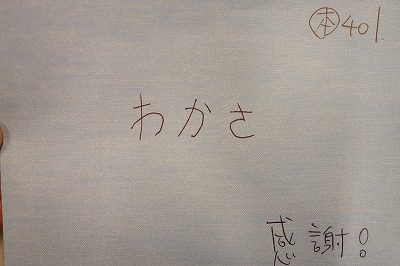 ㊍401
わかさ
感謝!